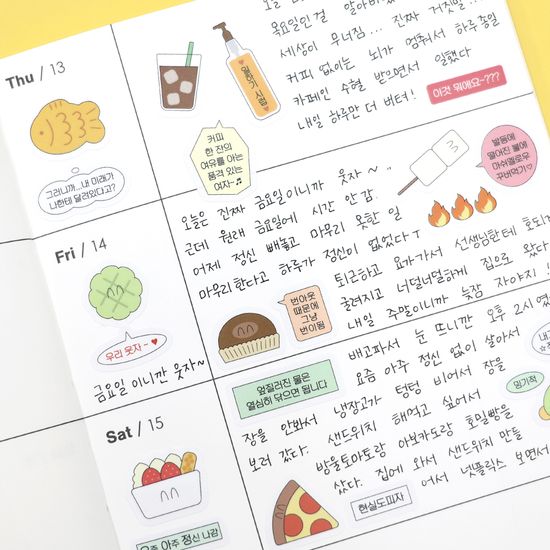 Thu / 13
그러니까...내 미래가
나한테 달려있다고?
일하기 시럽
커피
한 잔의
여유를 아는
품격 있는
여자~♬
목요일인걸
세상이 무너짐... 진짜 거짓말...
커피 없이는 뇌가 멈춰서 하루종일
카페인 수혈 받으면서 일했다
내일 하루만 더 버텨!
이것 뭐에요-???
발등에
떨어진 불에
마쉬멜로우
꾸버먹기♡
Fri / 14
우리 웃자~♥
금요일 이니깐 웃자~
오늘은 진짜 금요일이니까 웃자~
근데 원래 금요일에 시간 안 감..
어제 정신 빼놓고 마무리 못한 일
마무리한다고 하루가 정신이 없었다ㅜ
번아웃
때문에
그냥
번이됨
퇴근하고 요가가서 선생님한테 호되게
굴려지고 너덜너덜하게 집으로 왔다
내일 주말이니까 늦잠 자야지!
Sat / 15
요즘 아주 정신 나감
엎질러진 물은
열심히 닦으면 됩니다
배고파서 눈 뜨니깐 오후 2시였
요즘 아주 정신 없이 살아서
장을 안봐서 냉장고가 텅텅 비어서 장을
보러 갔다. 샌드위치 해먹고 싶어서
방울토마토랑 아보카도랑 호밀빵을
샀다. 집에 와서 샌드위치 만들
어서 넷플릭스 보면서
현실도피자
밍기적